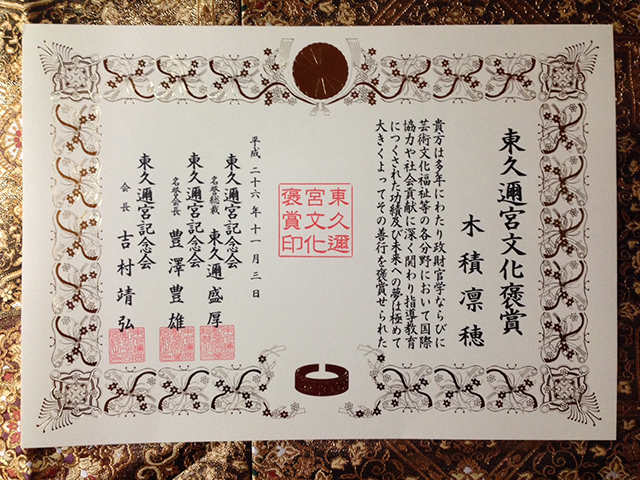 東久邇宮文化褒賞
木積凛穂
貴方は多年にわたり政財官学ならびに
芸術文化福祉等の各分野において国際
協力や社会貢献に深く関わり指導教育
につくされた功績及び未来への夢は極めて
大きくよってその善行を褒賞せられた
東久邇
宮文化
褒賞印
平成二十六年十一月三日
東久邇宮記念会
名誉総裁 東久邇盛厚
東久邇宮記念会
名誉会長 豊澤豊雄
東久邇宮記念会
会長 吉村靖弘